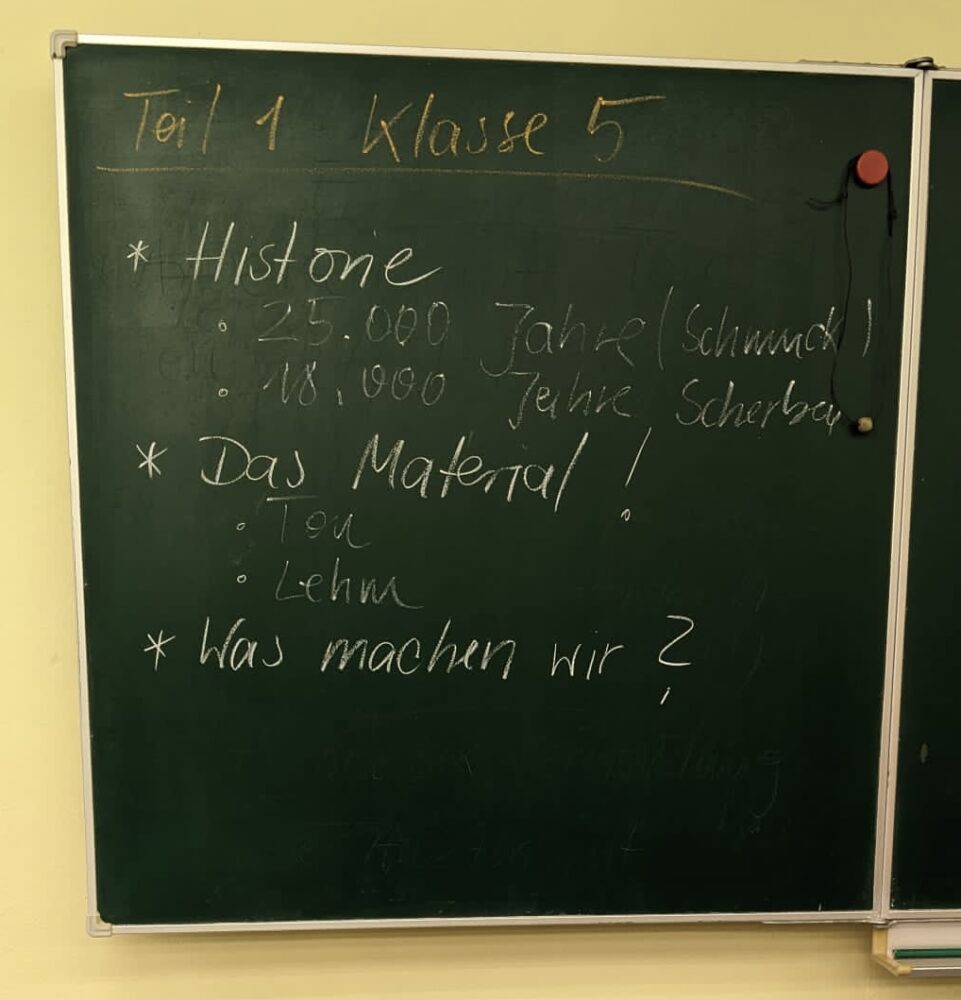 Teil 1 Klasse 5
* Historie
• 25.000 Jahre (Schmuck)
• 18.000 Jahre Scherben
* Das Material!
• Ton
• Lehm
* Was machen wir?